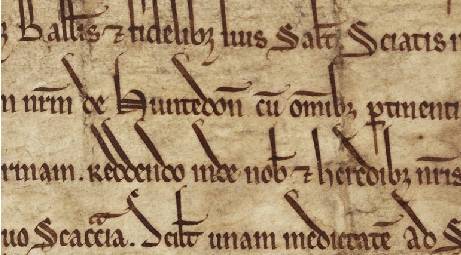 Ballis ⁊ fidelib; suis Salt̃ Sciatis
nr̃m de Huntedoñ cũ om̃ib; ꝑtinenti
rmam. Reddendo inde nob̃ ⁊ heredib; nr̃is
uo Scacc̃ia. Scilt̃ unam medietatẽ Ad S